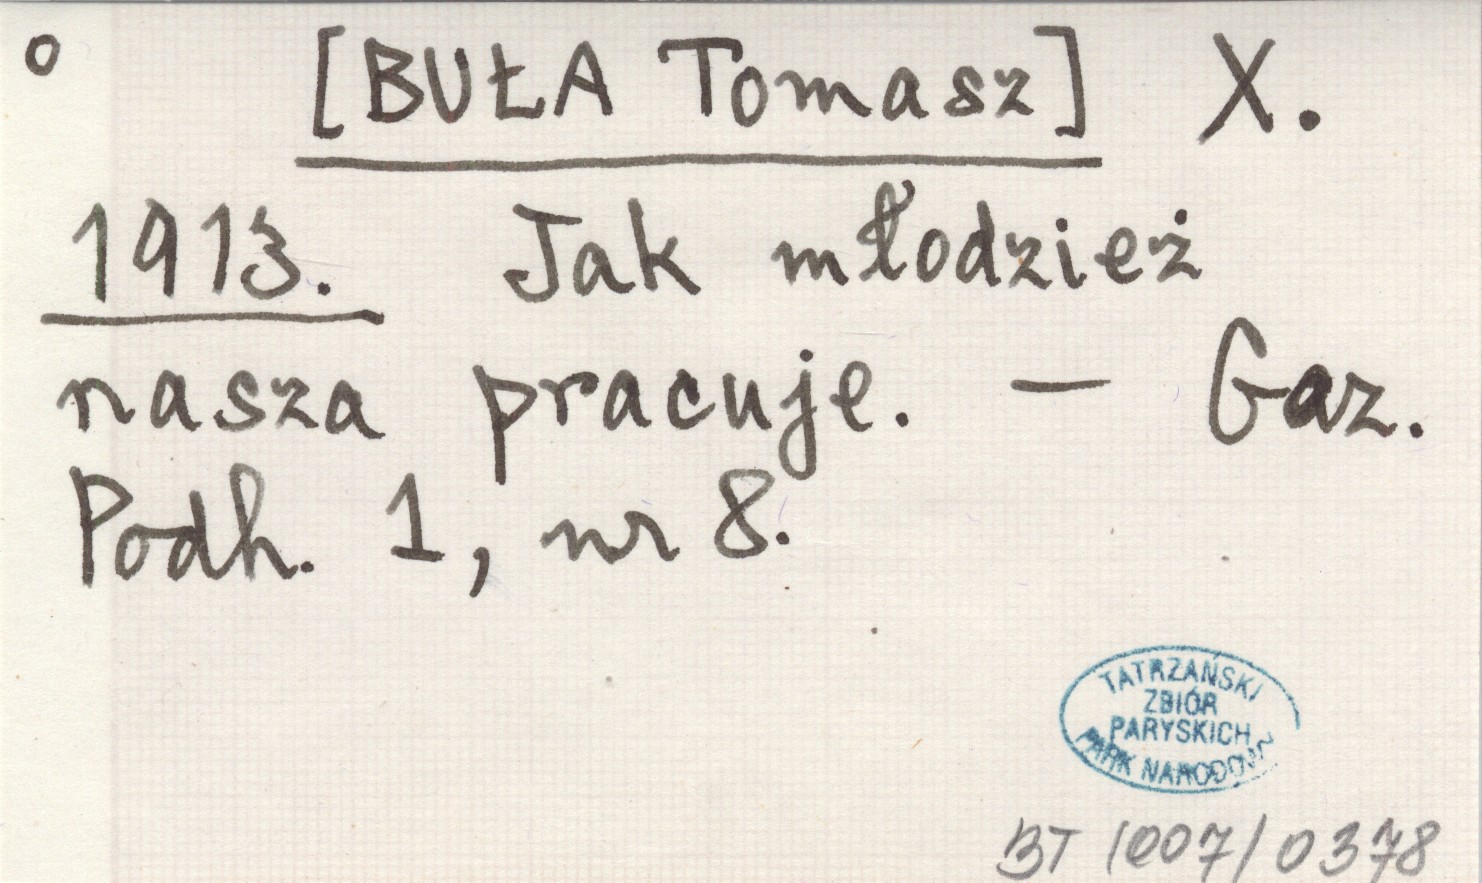 o [BUŁA Tomasz] X.
1913. Jak młodzież
nasza pracuje. — Gaz.
Podh. 1, nr 8.
TATRZAŃSKI
ZBIÓR
PARYSKICH
PARK NARODOWY
BT 1007/0378